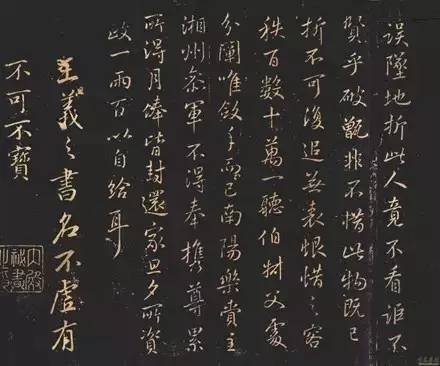 誤墜地折此人竟不看詎不
賢乎破甑非不惜此物既已
折不可復追無哀恨惜之容
秩百數十萬一聽伯樹父處
分闌唯斂手而已南陽樂貴主
湘州參軍不得奉攜尊累
所得月俸皆封還家旦夕所資
政一兩百以自給耳
王羲之書名不虛有
不可不寶
內殿秘書之印